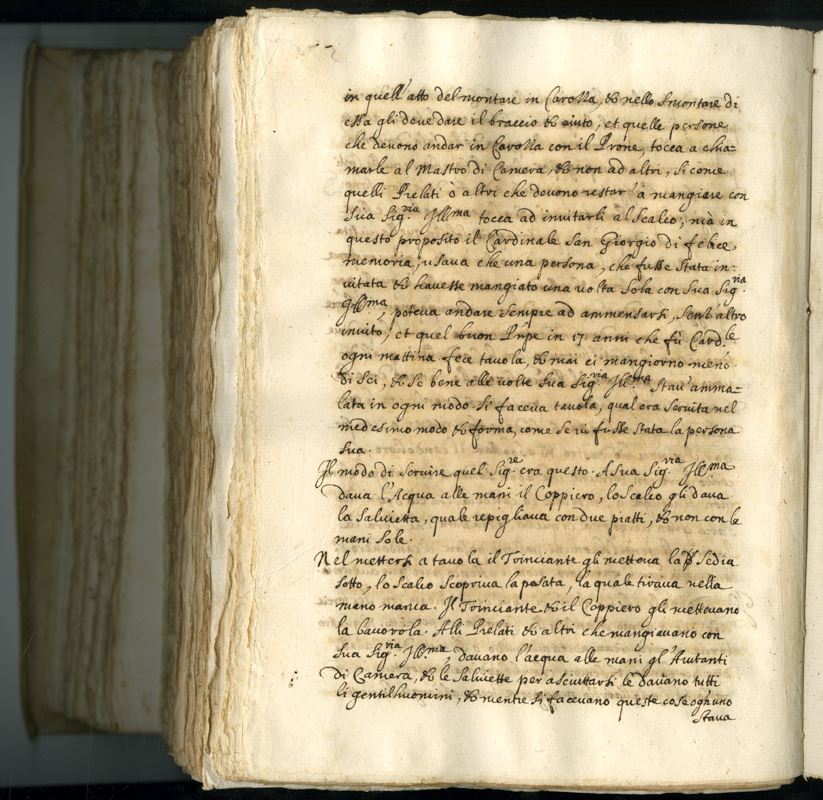 in quell'atto del montare in Carozza, & nello smontare di
essa gli deve dare il braccio & aiuto, et quelle persone
che devono andar in Carozza con il Prone, tocca a chia=
marle al Mastro di Camera, & non ad altri, si come
quelli Prelati ò altri che devono restar' à mangiare con
sua Sig.ria Ill.ma tocca ad invitarli al Scalco; mà in
questo proposito il Cardinale San Giorgio di felice
memoria, usava che una persona, che fusse stata in=
vitata & havesse mangiato una volta sola con sua Sig.ria
Ill.ma, poteva andare sempre ad ammensarsi, senz'altro
invito; et quel buon Pnpe in 17 anni che fù Card.le
ogni mattina fece tavola, & mai ci mangiorno meno
di sei, & se bene alle volte sua Sig.ria Ill.ma stav'amma=
lata in ogni modo si faceva tavola, qual era servita nel
medesimo modo & forma, come se ivi fusse stata la persona
sua.
Il modo di servire quel Sig.re era questo. A sua Sig.ria Ill.ma
dava l'Acqua alle mani il Coppiero, lo Scalco gli dava
la salvietta, quale repigliava con due piatti, & non con le
mani sole.
Nel mettersi a tavola il Trinciante gli metteva la sedia
sotto, lo Scalco scopriva la posata, la quale tirava nella
mano manca. Il Trinciante & il Coppiero gli mettevano
la bavorola. Alli Prelati & altri che mangiavano con
sua Sig.ria Ill.ma, davano l'acqua alle mani gl'Aiutanti
di Camera, & le salviette per asciuttarsi le davano tutti
li gentilhuomini, & mentre si facevano queste cose ogn'uno
stava